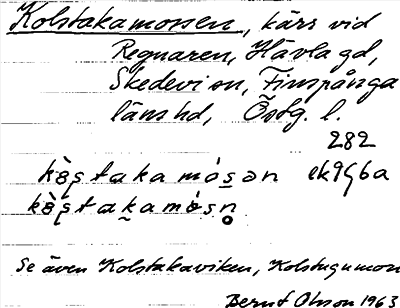 Kolstakamossen, kärr vid
Regnaren, Hävla gd,
Skedevi sn, Finspånga
läns hd, Östg. l.
282
kåstaka mósən ek9Gba
kåstakamósn̥
Se även Kolstakaviken, Kolstugumon
Bernt Olsson 1963